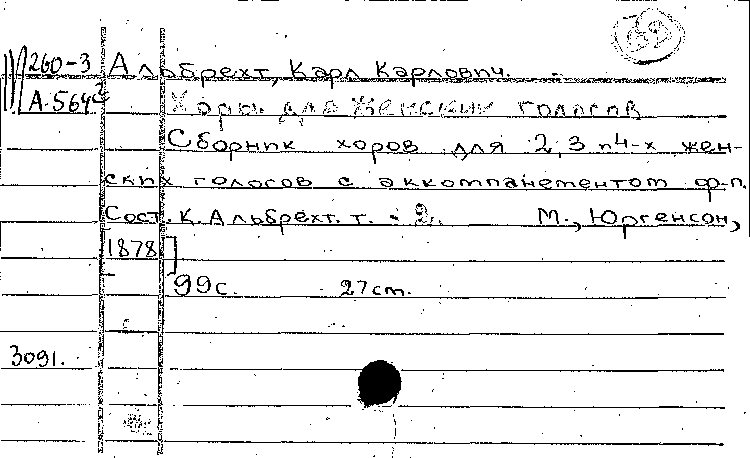 260-3 Альбрехт, Карл Карлович.
А.564² Хоры для женских голосов
Сборник хоров для 2, 3 и 4-х жен-
ских голосов с аккомпанементом ф-п.
Сост. К. Альбрехт. т. - 2. М., Юргенсон,
1878]
99 с. 27 cm.
3091.